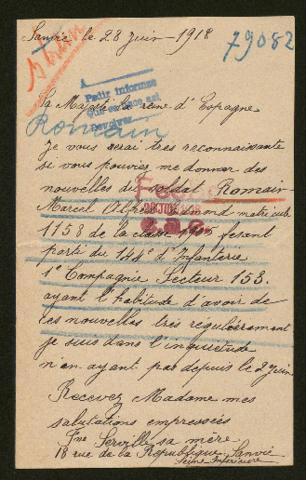 Sanvic le 28 Juin - 1918
79082
A
Pedir informes
que en caso así
devolver
Sa Majesté la reine d'Espagne
Romain
Je vous serai très reconnaissante
si vous pouviez me donner des
nouvelles du soldat Romain
Marcel Alfred matricule
1758 de la classe fesant
partie du 194e d'Infanterie
1e Compagnie Secteur 153.
ayant l'habitude d'avoir de
ces nouvelles très régulièrement
je suis dans l'inquiétude
n'en ayant pas depuis le 2 Juin
Recevez Madame mes
salutations empressées
Fme Serville sa mère
18 rue de la République Sanvic
Seine Inférieure